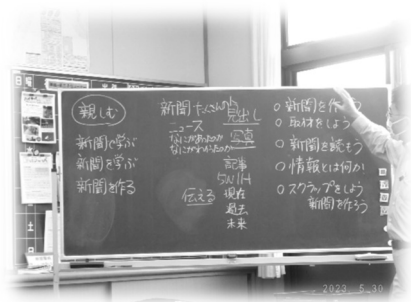 親しむ
新聞で学ぶ
新聞を学ぶ
新聞を作る
新聞
見出し
ニュース
なにがあったか
なにがわかったか
写真
記事
5W1H
伝える
現在
過去
未来
○新聞を作ろう
○取材をしよう
○新聞を読もう
○情報とは何か
○スクラップをしよう
新聞を作ろう
2023. 5.30